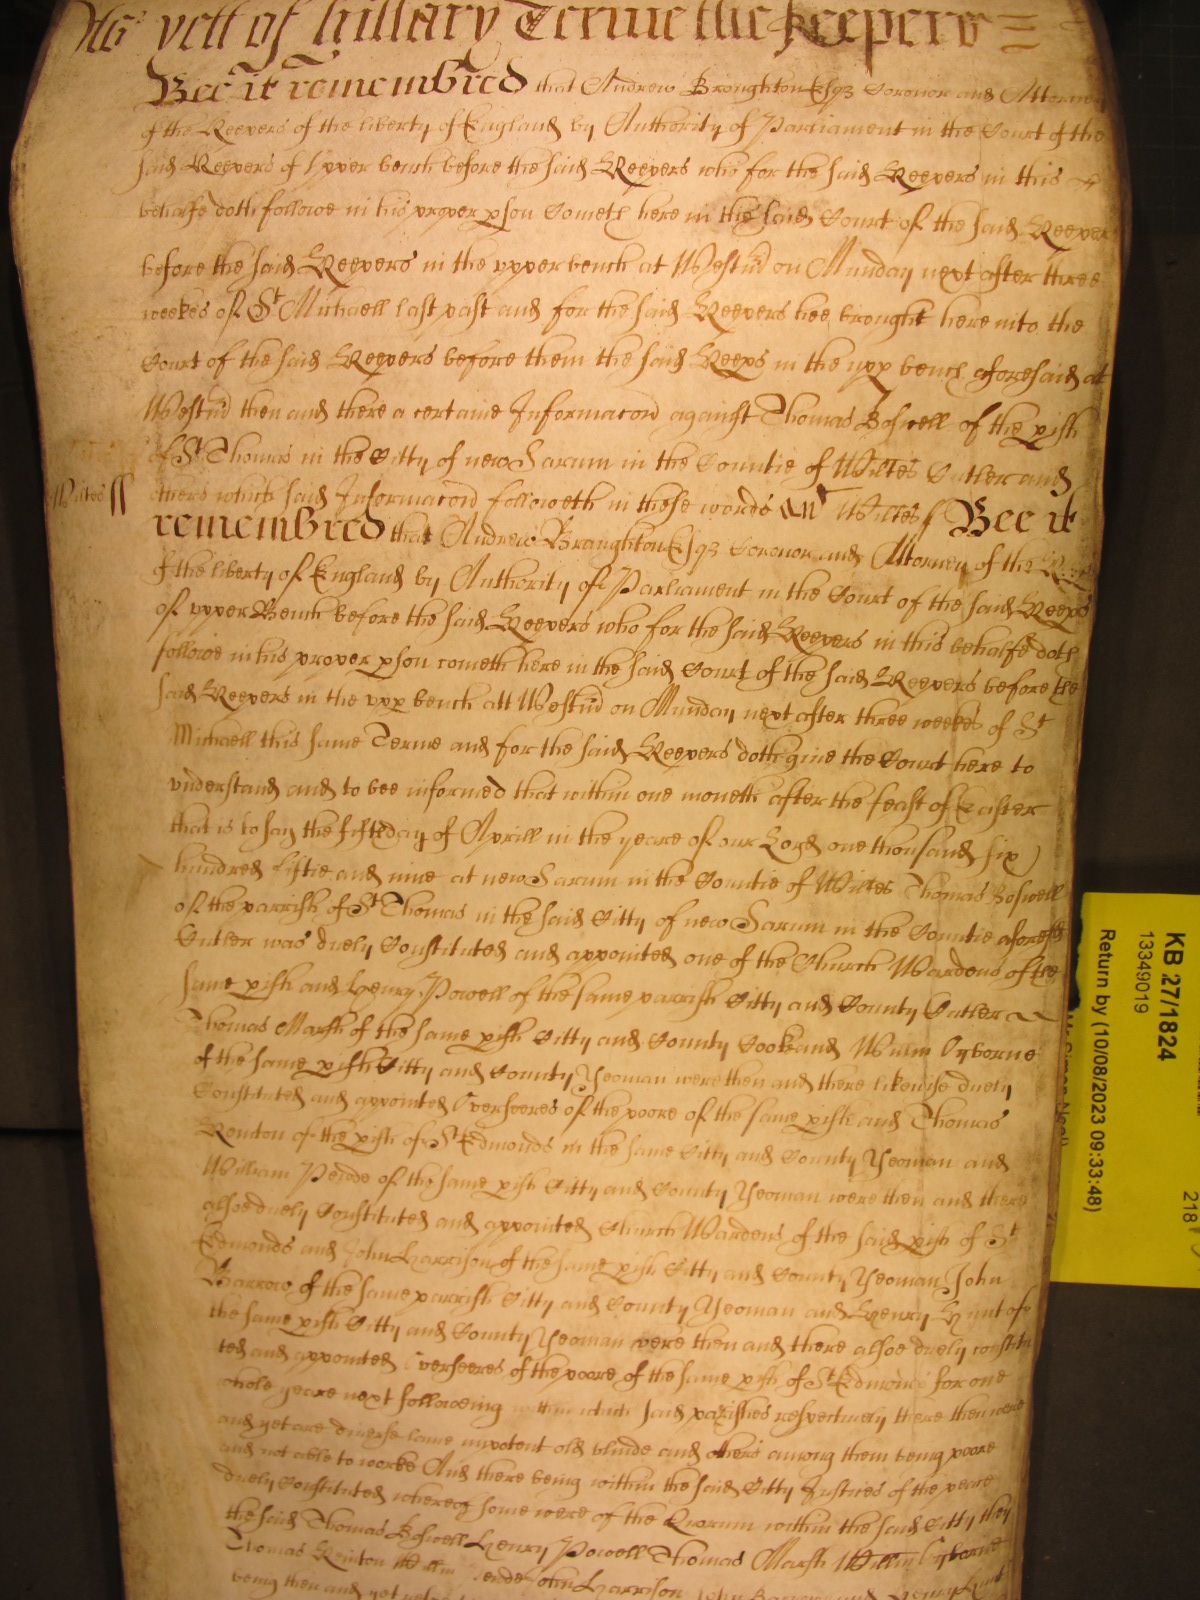 As yett of hillary Terme the Keepers
Bee it remembred that Andrew Broughton Esqz Coronor and Attorney
of the Keepers of the liberty of England by Authority of Parliament in the Court of the
said Keepers of Upper bench before the said Keepers who for the said Keepers in this
behalfe doth followe in his proper pson Cometh here in the said Court of the said Keepers
before the said Keepers in the upper bench at Westm̃ on Munday next after three
weekes of St Michaell last past and for the said Keepers hee brought here into the
Court of the said Keepers before them the said Keeps in the upp bench aforesaid at
Westm̃ then and there a certaine Informacon against Thomas Boswell of the pish
of St Thomas in the Citty of new Sarum in the Countie of Wiltes Cutler and
Wiltes ss others which said Informacon followeth in these words Wiltes ss Bee it
remembred that Andrew Broughton Esqz Coronor and Attorney of the Keepers
of the liberty of England by Authority of Parliament in the Court of the said Keeps
of upper Bench before the said Keepers who for the said Keepers in this behalfe doth
followe in his proper pson cometh here in the said Court of the said Keepers before the
said Keepers in the upp bench att Westm̃ on Munday next after three weekes of St
Michaell this same Terme and for the said Keepers doth give the Court here to
understand and to bee informed that within one moneth after the feast of Easter
that is to say the first day of Aprill in the yeare of our Lord one thousand six
hundred fiftie and nine at new Sarum in the Countie of Wiltes Thomas Boswell
of the parrish of St Thomas in the said Citty of new Sarum in the Countie aforesd
Cutler was duely Constituted and appointed one of the Church Wardens of the
same pish and Henry Powell of the same parrish Citty and County Cutler
Thomas Marsh of the same pish Citty and County Cooke and Willm Osborne
of the same pish Citty and County Yeoman were then and there likewise duely
Constituted and appointed Overseeres of the poore of the same pish and Thomas
Kenton of the pish of St Edmonds in the same Citty and County Yeoman and
William Pende of the same pish Citty and County Yeoman were then and there
alsoe duely Constituted and appointed Church Wardens of the said pish of St
Edmonds and John Harrison of the same pish Citty and County Yeoman John
Barrow of the same parrish Citty and County Yeoman and Henry Hunt of
the same pish Citty and County Yeoman were then and there alsoe duely constitu
ted and appointed Overseeres of the poore of the same pish of St Edmonds for one
whole yeare next following within which said parishes respectively there then were
and yet are diverse lame impotent old blinde and others among them being poore
and not able to worke And there being within the said Citty Justices of the peace
duely Constituted whereof some were of the Quorum within the said Citty they
the said Thomas Boswell Henry Powell Thomas Marsh Willm Osborne
Thomas Kenton Willm Pende John Harrison John Barrow and Henry Hunt
being then and yet
KB 27/1824
13349019
Return by (10/08/2023 09:33:48)
218